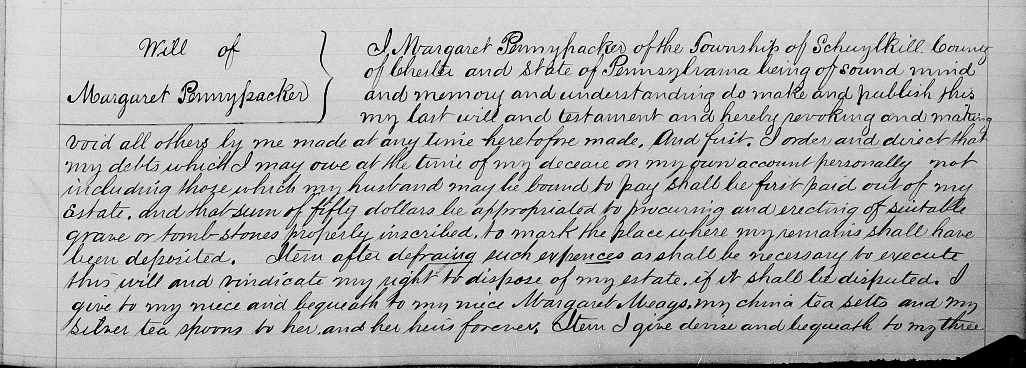 Will of
Margaret Pennypacker
I, Margaret Pennypacker of the Township of Schuylkill County
of Chester and State of Pennsylvania being of sound mind
and memory and understanding do make and publish this
my last will and testament and hereby revoking and making
void all others by me made at any time heretofore made. And first. I order and direct that
my debts which I may owe at the time of my decease on my own account personally not
including those which my husband may be bound to pay shall be first paid out of my
Estate. and that sum of fifty dollars be appropriated to procuring and erecting of suitable
grave or tomb-stones properly inscribed. to mark the place where my remains shall have
been deposited. Item after defraing such expences as shall be necessary to execute
this will and vindicate my right to dispose of my estate. if it shall be disputed. I
give to my niece and bequeath to my niece Margaret Meags. my china tea setts and my
silver tea spoons to her. and her heirs forever. Item I give devise and bequeath to my three